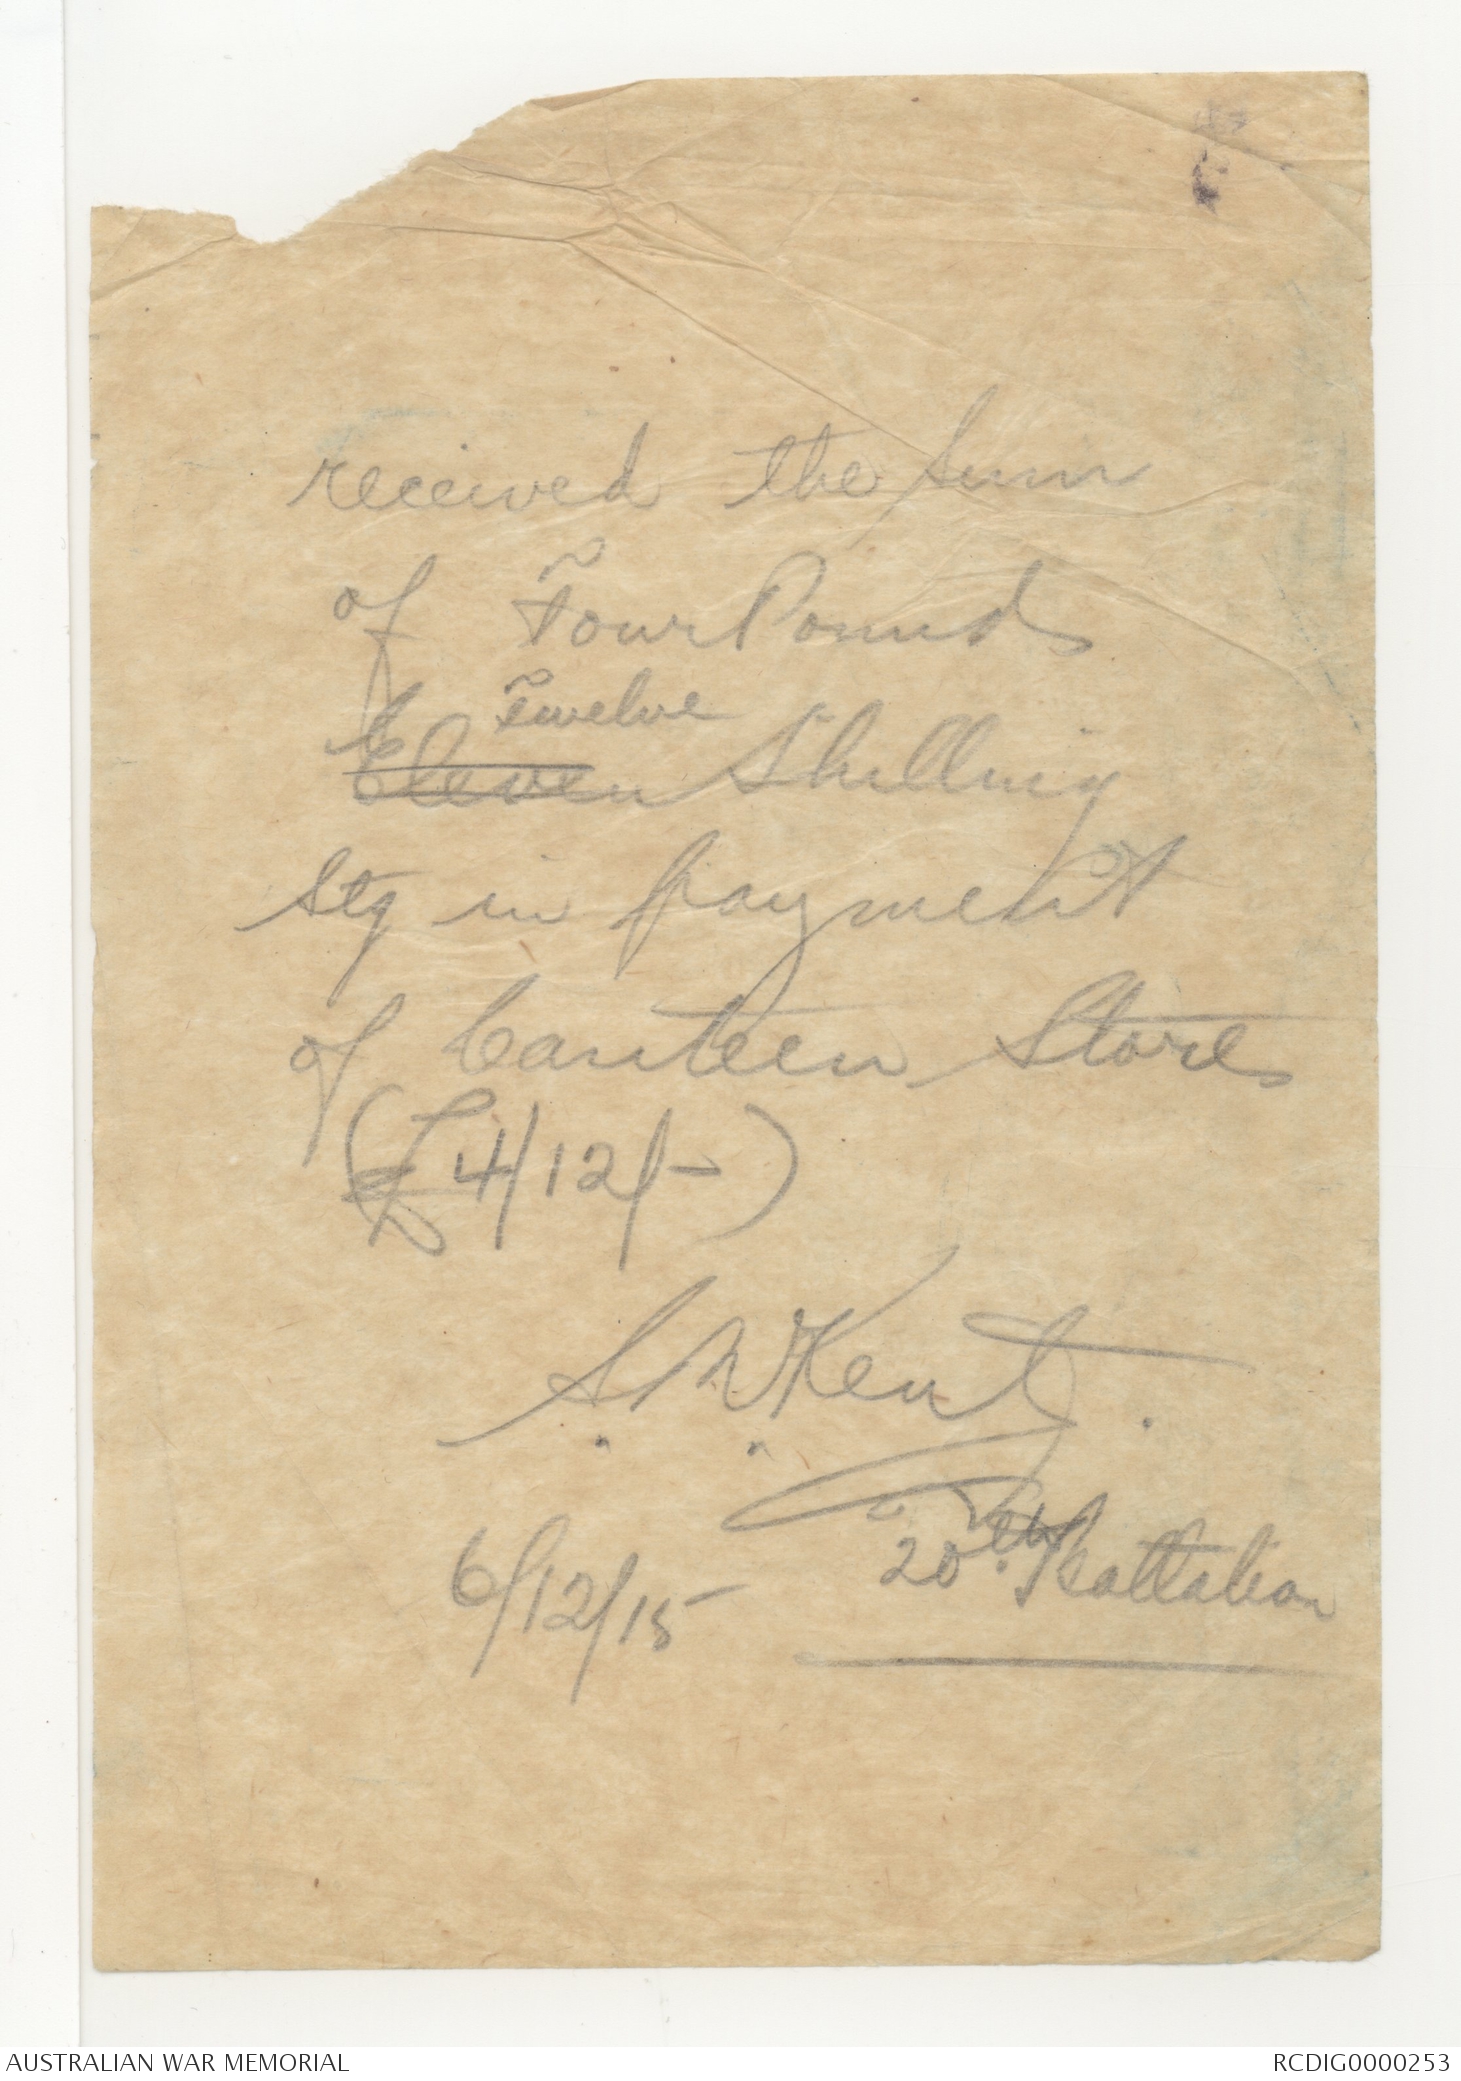 received the sum
of Four Pounds
Twelve
Eleven Shilling
stg in payment
of Canteen Stores
(£4/12/-)
S. W. Kent.
20th Battalion
6/12/15
AUSTRALIAN WAR MEMORIAL
RCDIG0000253